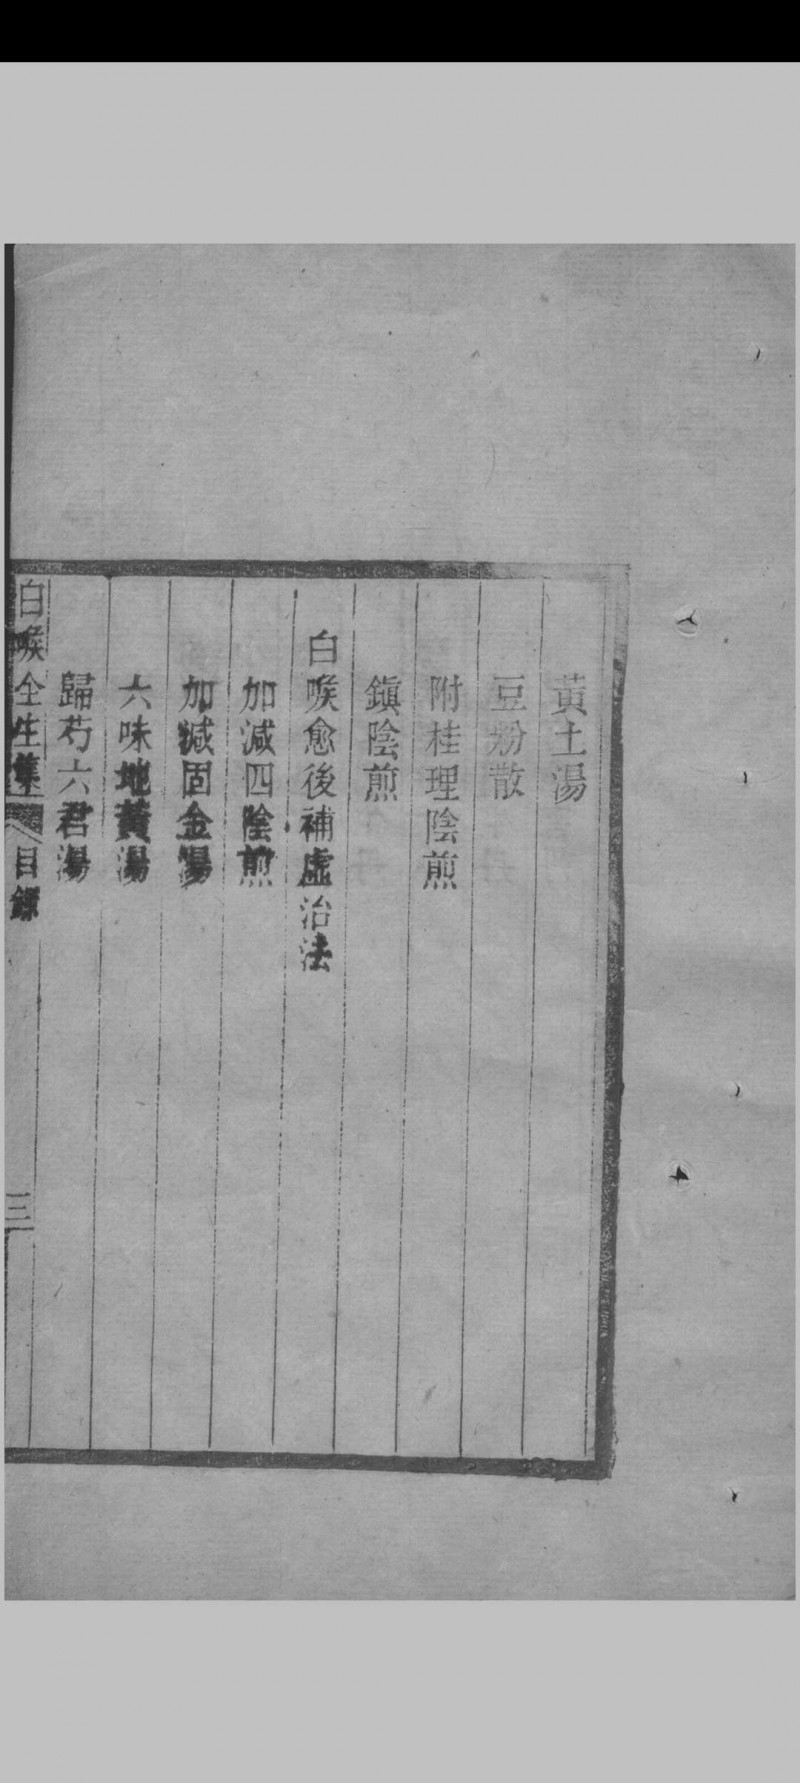 黃土湯
豆粉散
附桂理陰煎
鎮陰煎
白喉愈後補虛治法
加減四陰煎
加減固金湯
六味地黃湯
歸芍六君湯
白喉全生集 目錄 三